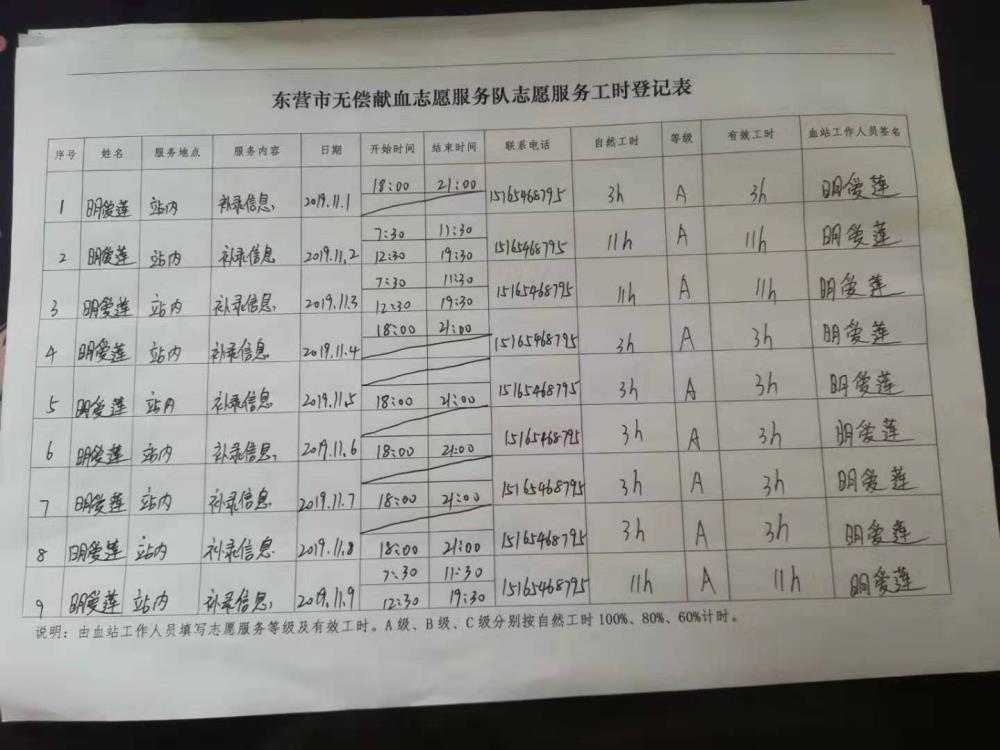 东营市无偿献血志愿服务队志愿服务工时登记表
序号 姓名 服务地点 服务内容 日期 开始时间 结束时间 联系电话 自然工时 等级 有效工时 血站工作人员签名
18:00 21:00
1 明爱莲 站内 补录信息 2019.11.1 15165468795 3h A 3h 明爱莲
7:30 11:30
2 明爱莲 站内 补录信息 2019.11.2 12:30 19:30 15165468795 11h A 11h 明爱莲
7:30 11:30
3 明爱莲 站内 补录信息 2019.11.3 12:30 19:30 15165468795 11h A 11h 明爱莲
18:00 21:00
4 明爱莲 站内 补录信息 2019.11.4 15165468795 3h A 3h 明爱莲
5 明爱莲 站内 补录信息 2019.11.5 18:00 21:00 15165468795 3h A 3h 明爱莲
6 明爱莲 站内 补录信息 2019.11.6 18:00 21:00 15165468795 3h A 3h 明爱莲
7 明爱莲 站内 补录信息 2019.11.7 18:00 21:00 15165468795 3h A 3h 明爱莲
8 明爱莲 站内 补录信息 2019.11.8 18:00 21:00 15165468795 3h A 3h 明爱莲
7:30 11:30
9 明爱莲 站内 补录信息 2019.11.9 12:30 19:30 15165468795 11h A 11h 明爱莲
说明：由血站工作人员填写志愿服务等级及有效工时。A级、B级、C级分别按自然工时100%、80%、60%计时。